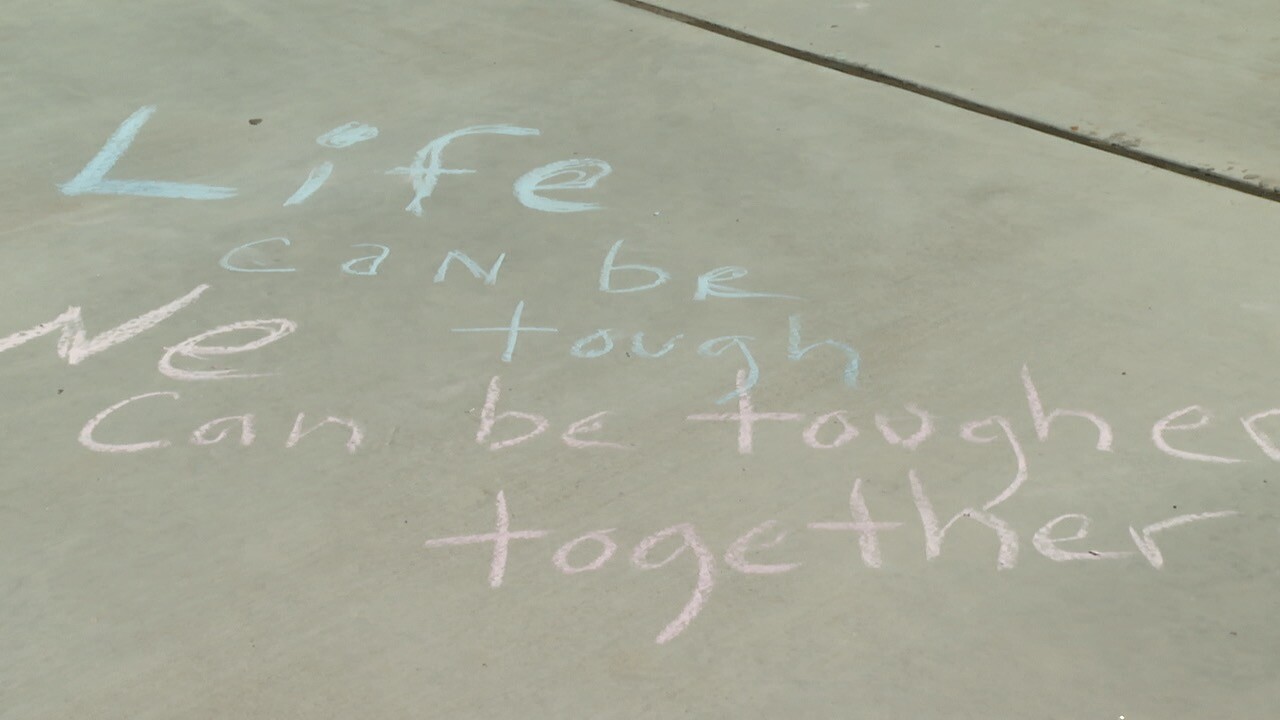 Life
can be
tough
We
Can be tougher
together